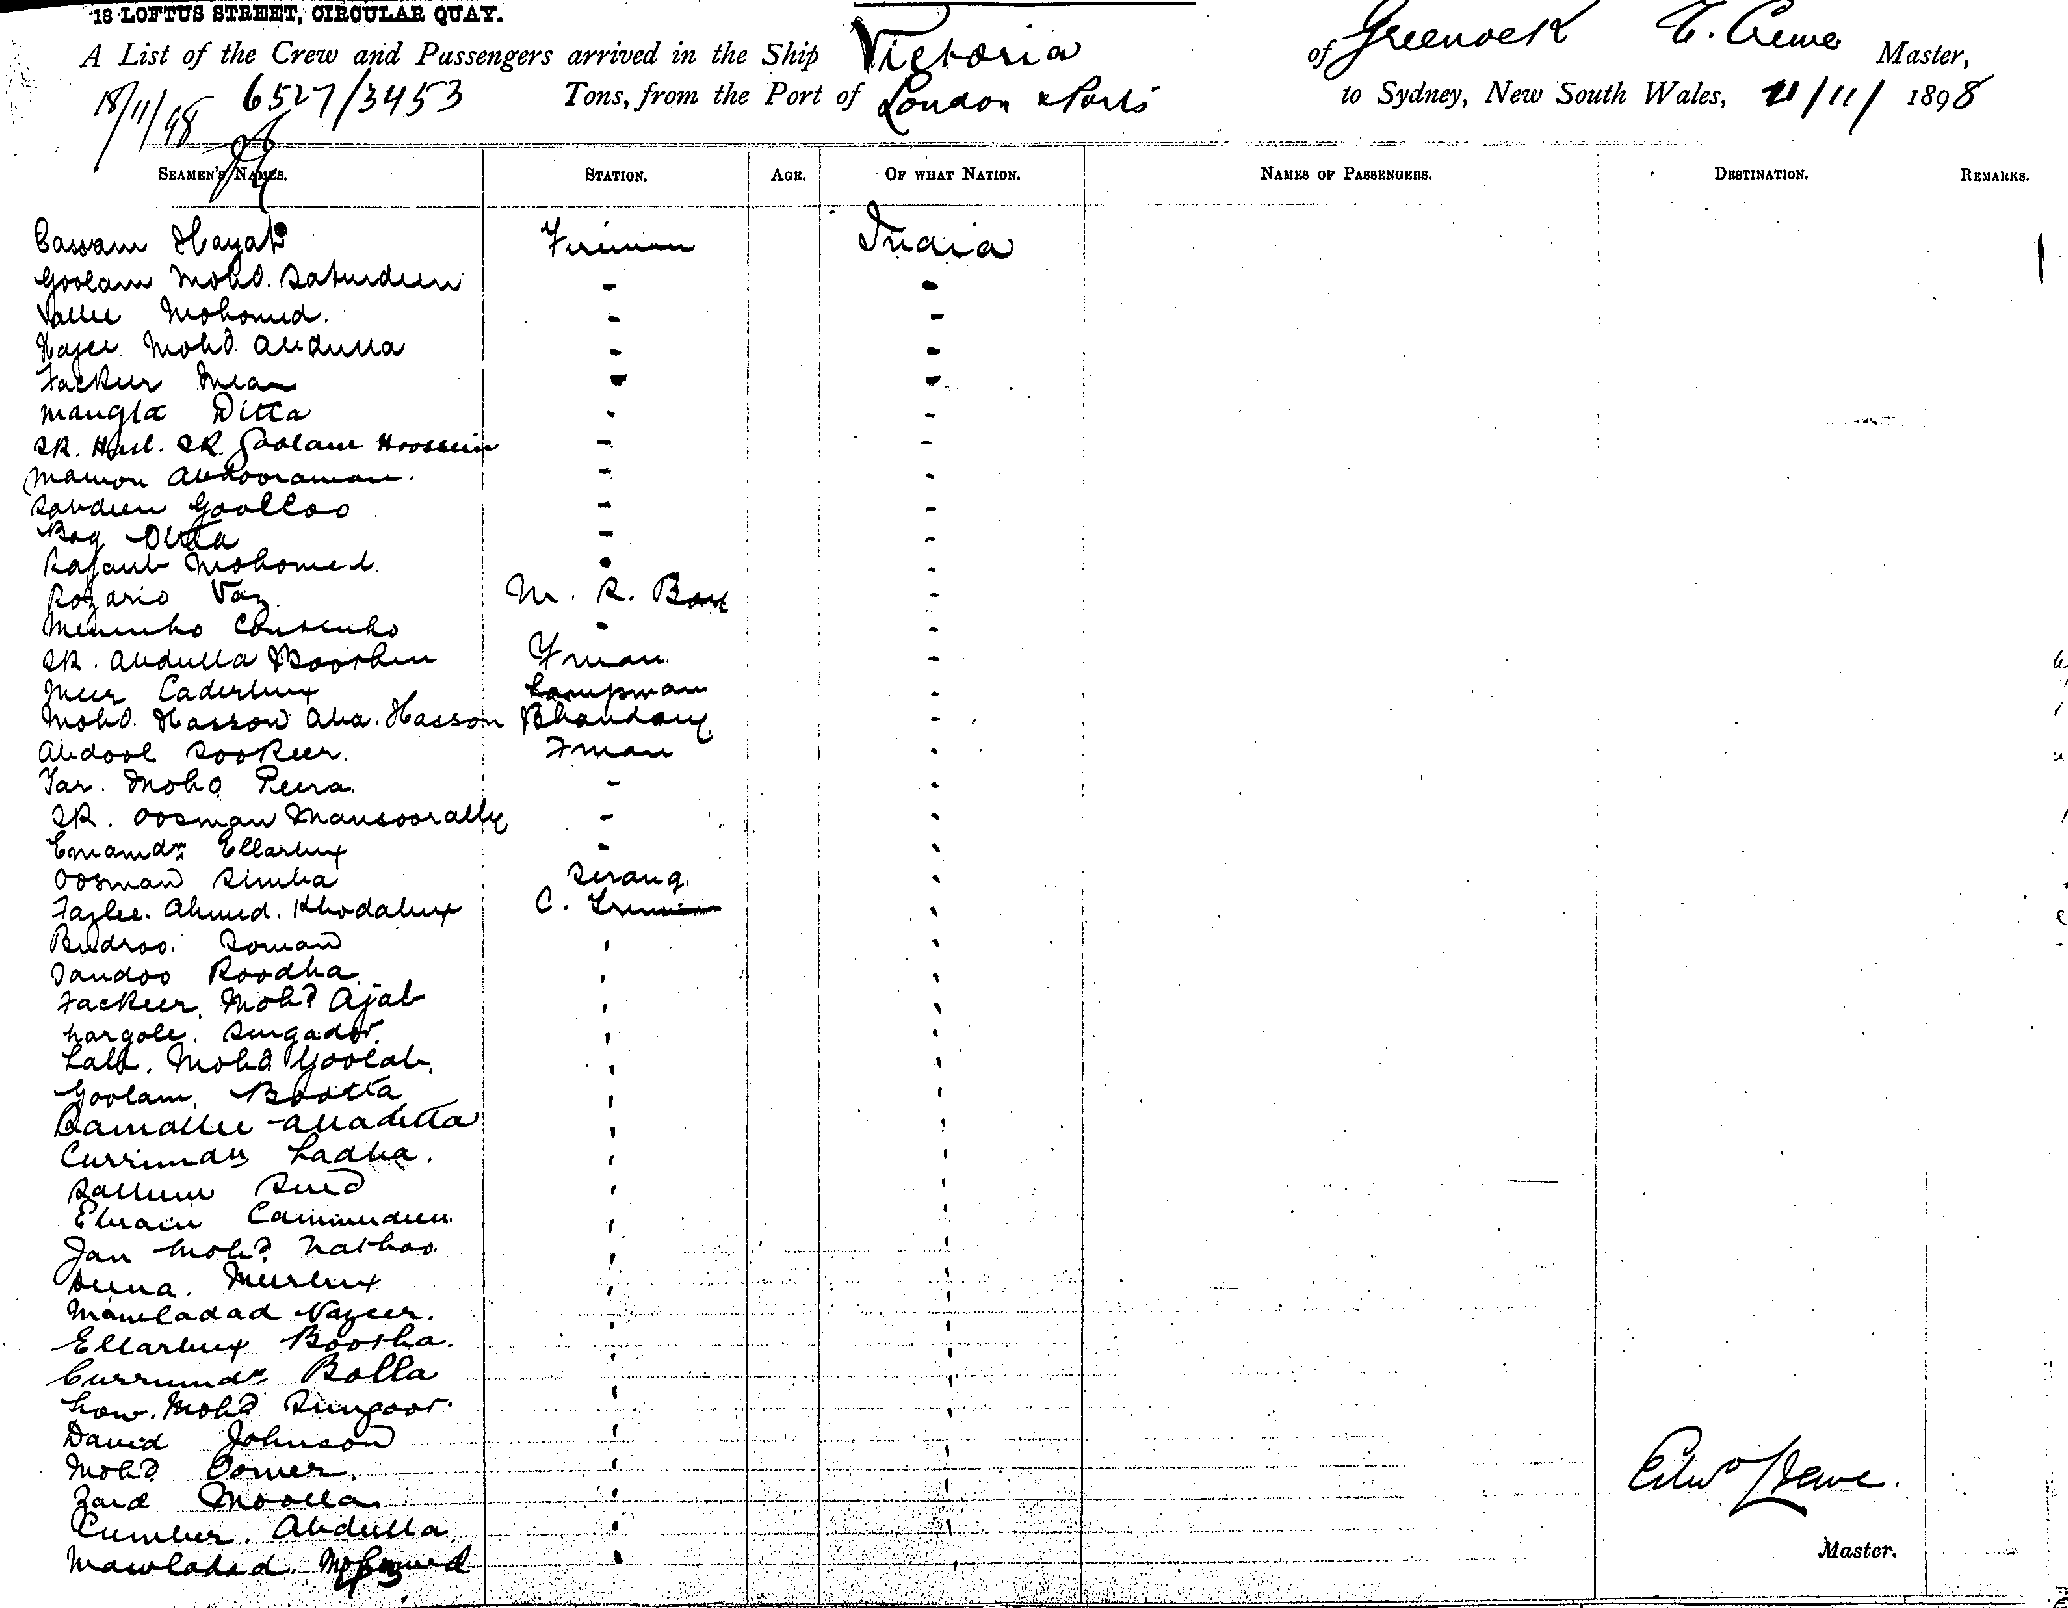 18 LOFTUS STREET, CIRCULAR QUAY.
A List of the Crew and Passengers arrived in the Ship Victoria of Greenock E. Crewe Master,
18/11/98 6527/3453 Tons, from the Port of London & Ports to Sydney, New South Wales, 11/11/ 1898
SEAMEN'S NAMES. STATION. AGE. OF WHAT NATION. NAMES OF PASSENGERS. DESTINATION. REMARKS.
Hayat Fireman India
Goolam Mohd. - -
Vallee Mohomed. - -
Hajee Mohd. Abdulla - -
Fackeer Mean - -
Mangta Ditta - -
SK. SK. Goolam Hoossein - -
Mamon Abdooraman. - -
Sabdeen Goolloo - -
Bag Ditta - -
Rajaub Mohomed. - -
Rozario Vaz M. R. Boy -
Meninho - -
SK. Abdulla Boorhan Fman -
Meer Caderbux Lampman -
Mohd. Hasson Aba. Hasson Bhandary -
Abdool Sookeer. Fman -
Yar. Mohd Peera. - -
SK. Oosman Mansoorally - -
Emamdn Ellarbux - -
Oosman Simba Serang -
Fazlee. Ahmed. Khodabux C. Fireman -
Budroo. Soman ' '
Jandoo Roodha ' '
Fackeer. Mohd Ajab ' '
Nargole. ' '
Lall. Mohd Goolab. ' '
Goolam. Bootta ' '
Ramallee Alladitta ' '
Currimdn Ladha. ' '
' '
Ebram ' '
Jan Mohd Nathoo ' '
Meerbux ' '
Mowladad Nazeer. ' '
Ellarbux Boosha. ' '
Currimdn Bolla ' '
Mohd ' '
David Johnson ' '
Mohd Oomer. ' '
Zaid Moolla. ' ' Edwd Crewe.
Cumber. Abdulla ' '
Mowladad. Mohomed ' ' Master.